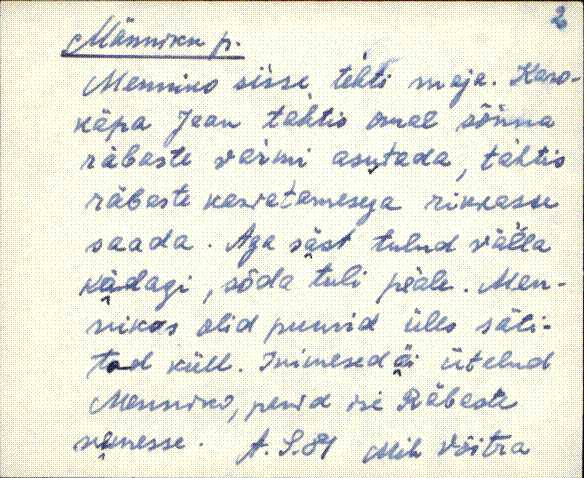 2
Männiku p.
Menniko sisse tehti maja. Karo-
käpa Jaan tahtis omal sõnna
räbaste varmi asutada, tahtis
räbaste kasvatamesega rikkasse
saada. Aga säst tulnd välla
kädagi, sõda tuli peale. Men-
nikos olid puurid ülles säti-
tod küll. Inimesed äi ütelnd
Menniko, panid ise Räbaste
nemesse. A. S. 81 Mih Võitra